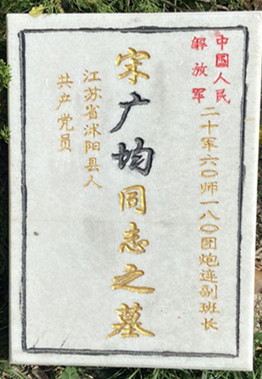 中國人民
解放军
二十军六〇师一八〇团炮连副班长
宋广均同志之墓
江苏省沭阳县人
共产党员